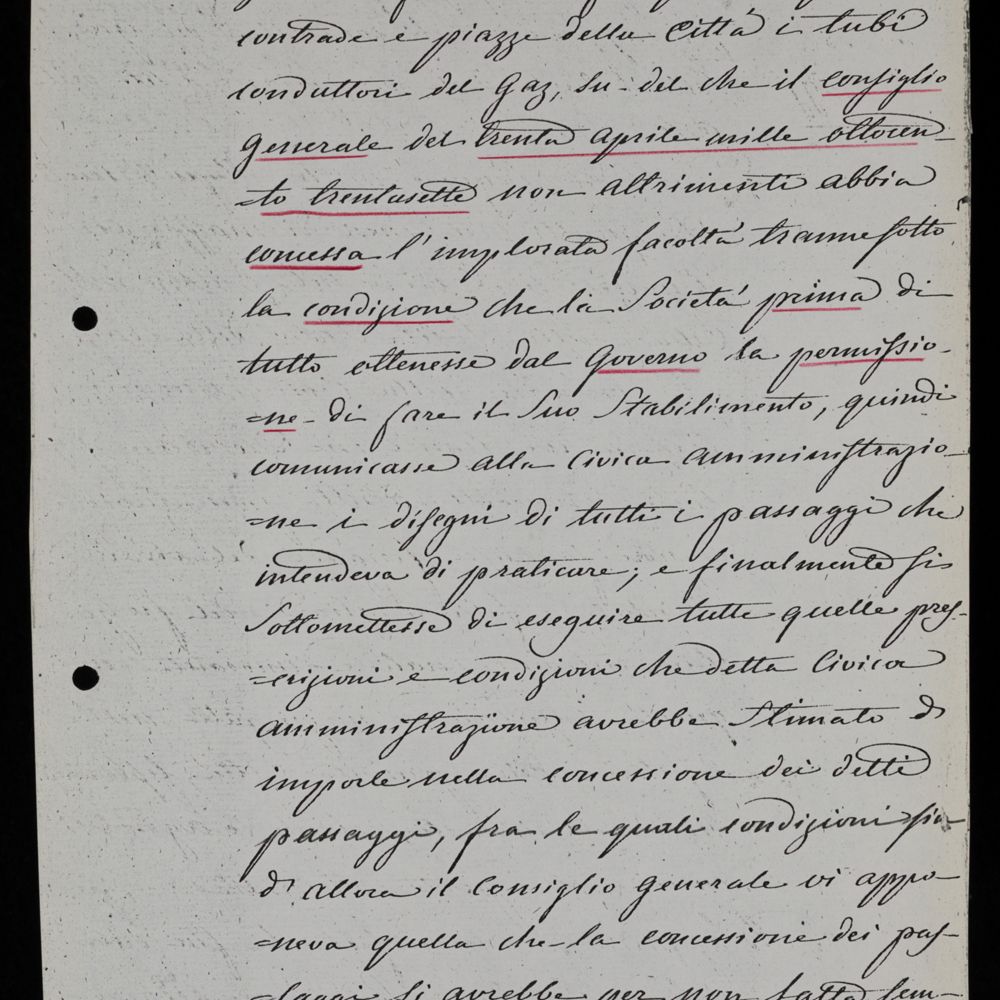 contrade e piazze della Città i tubi
conduttori del Gaz, su del che il Consiglio
Generale del trenta aprile mille ottocen-
=to trentasette non altrimenti abbia
concessa l'implorata facoltà tranne sotto
la condizione che la Società prima di
tutto ottenesse dal Governo la permissio-
=ne di fare il suo Stabilimento, quindi
comunicasse alla Civica amministrazio-
=ne i disegni di tutti i passaggi che
intendeva di praticare; e finalmente si
sottomettesse di eseguire tutte quelle pres-
=crizioni e condizioni che detta Civica
amministrazione avrebbe stimato d
imporle nella concessione dei detti
passaggi, fra le quali condizioni sin
d'allora il Consiglio Generale vi appo-
=neva quella che la concessione dei pas-
=saggi si avrebbe per non fatta sem-